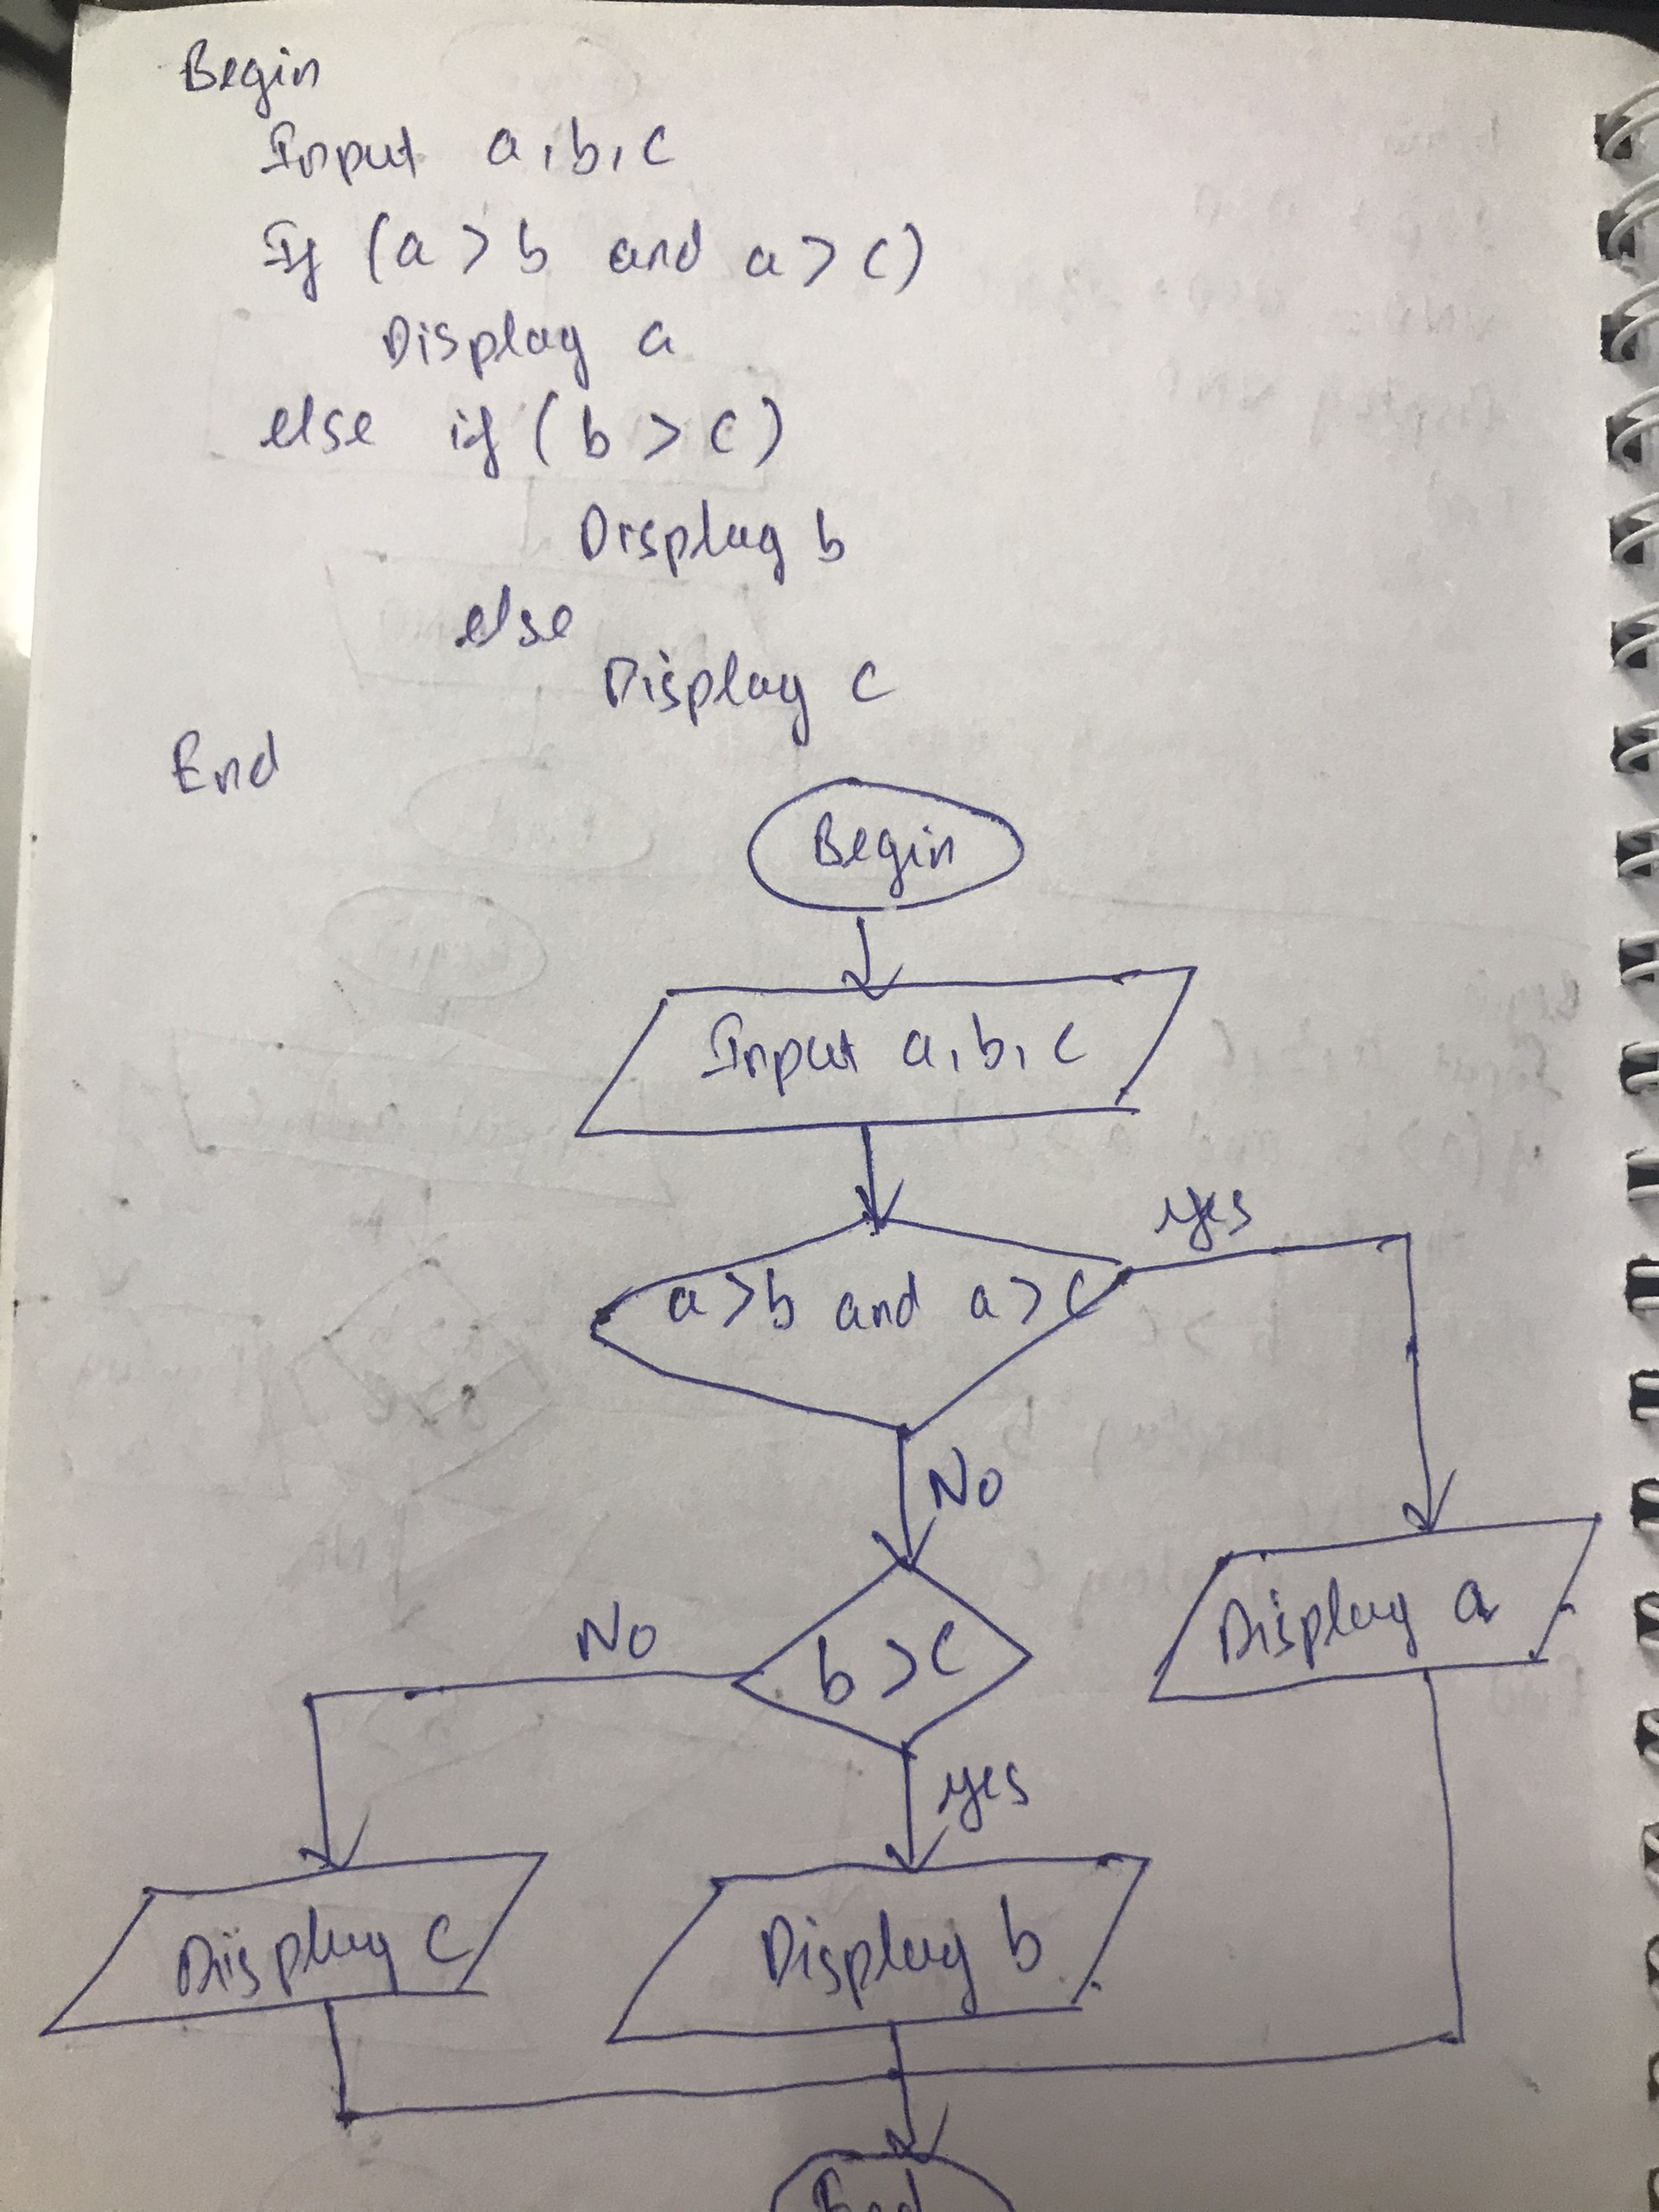 Begin
Input a, b, c
If (a > b and a > c)
Display a
else if (b > c)
Display b
else
Display c
End
Begin
Input a, b, c
a > b and a > c
yes
No
b > c
No
Display a
yes
Display c
Display b
End